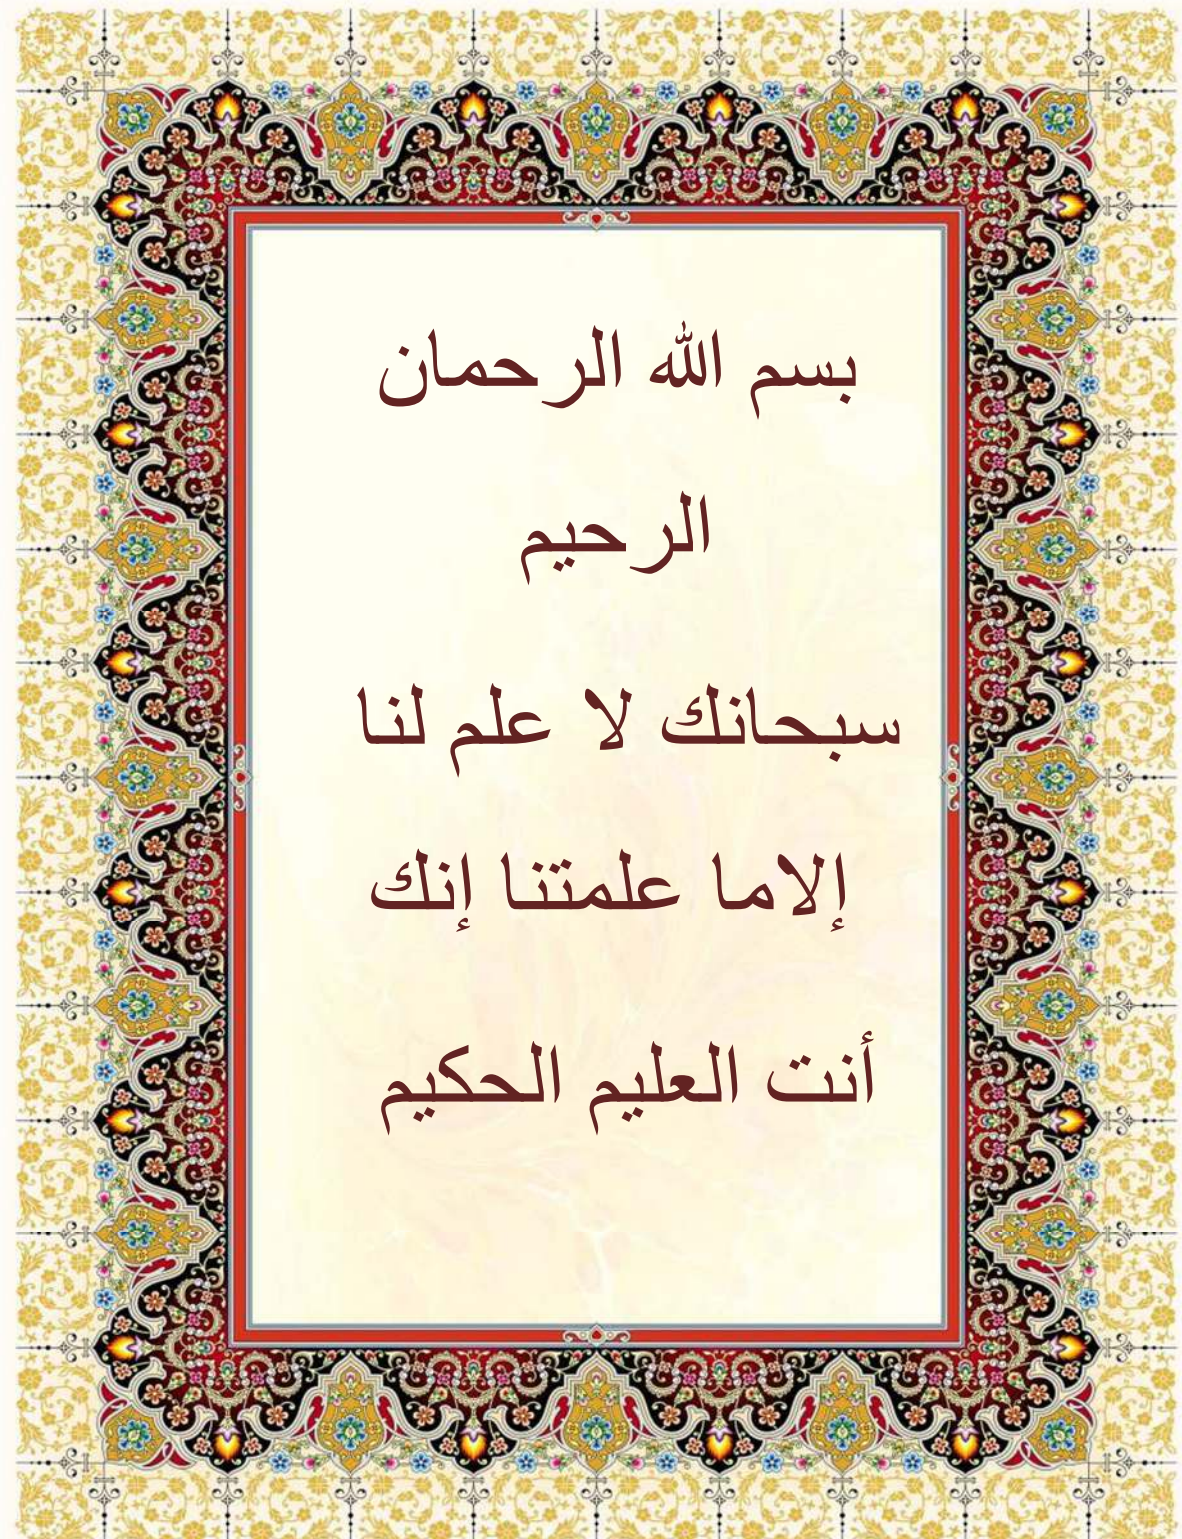 بسم الله الرحمان
الرحيم
سبحانك لا علم لنا
إلاما علمتنا إنك
أنت العليم الحكيم